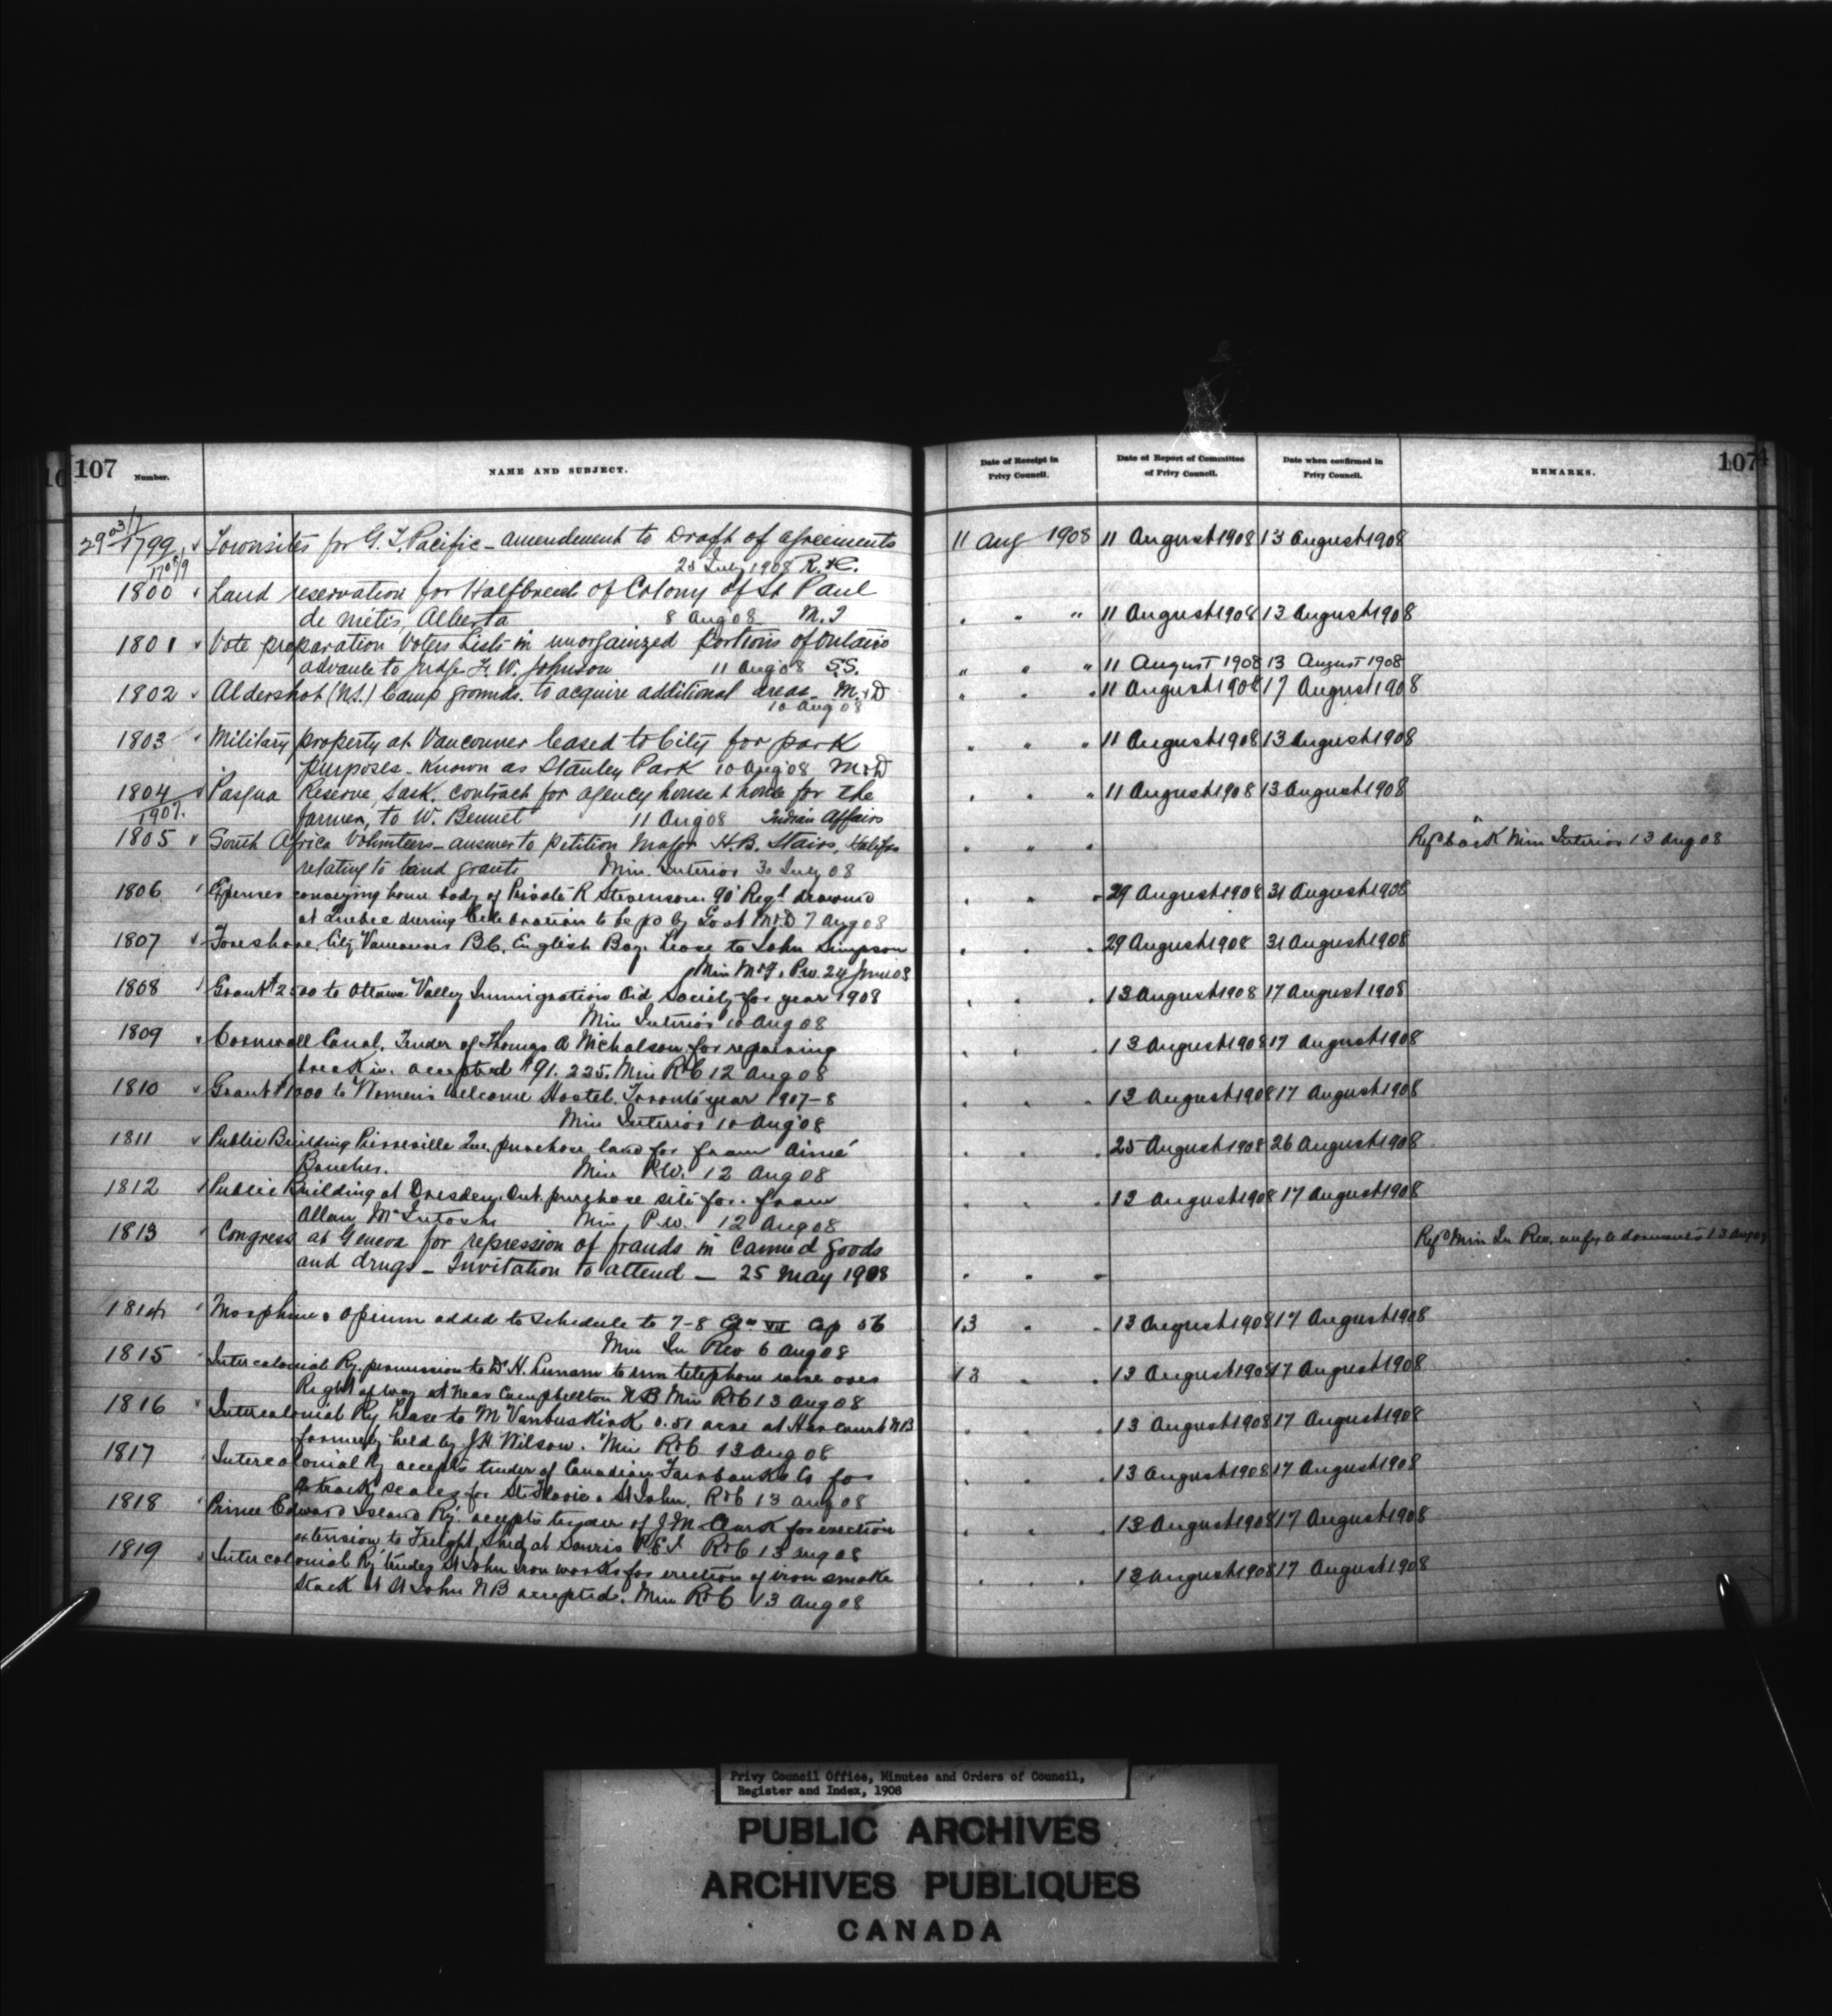 107
Number.
NAME AND SUBJECT.
Date of Receipt in Privy Council.
Date of Report of Committee of Privy Council.
Date when confirmed in Privy Council.
REMARKS.
107
1799 Townsites for G. T. Pacific - amendment to Draft of agreements 11 Aug 1908 11 August 1908 13 August 1908
July 1908 R. & C.
1800 Land reservation for Halfbreeds of Colony of St Paul
de metis, Alberta 8 Aug 08 M. I " " " 11 August 1908 13 August 1908
1801 Vote preparation Voters Lists in unorganized portions of Ontario
advance to Judge F. W. Johnson 11 Aug 08 S.S. " " " 11 August 1908 13 August 1908
1802 Aldershot (N.S.) Camp grounds. to acquire additional areas - M. & D " " " 11 August 1908 17 August 1908
10 Aug 08
1803 Military property at Vancouver leased to City for park " " " 11 August 1908 13 August 1908
purposes - Known as Stanley Park 10 Aug 08 M & D
1804 Pasqua Reserve, Sask. contract for agency house & house for the " " " 11 August 1908 13 August 1908
1907.
farmer, to W. Bennet 11 Aug 08 Indian Affairs
1805 South Africa Volunteers - answer to petition Major H. B. Stairs, Halifax " " " Refd back Min Interior 13 Aug 08
relating to land grants Min. Interior 30 July 08
1806 Expenses conveying home body of Private R Stevenson. 90 Regt drowned " " " 29 August 1908 31 August 1908
at Quebec during Celebration to be pd by Govt M & D 7 Aug 08
1807 Foreshore, City Vancouver B.C. English Bay. Lease to John Simpson " " " 29 August 1908 31 August 1908
Min M & F. 24 June 08
1808 Grant $2500 to Ottawa Valley Immigration Aid Society for year 1908 " " " 13 August 1908 17 August 1908
Min Interior 10 Aug 08
1809 Cornwall Canal. Tender of Thomas A Nicholson for repairing " " " 13 August 1908 17 August 1908
break in. accepted $91.225. Min R & C 12 Aug 08
1810 Grant $1000 to Women's Welcome Hostel. Toronto year 1907-8 " " " 13 August 1908 17 August 1908
Min Interior 10 Aug 08
1811 Public Building Pierreville Que. purchase land for from Aimé " " " 25 August 1908 26 August 1908
Boucher. Min P.W. 12 Aug 08
1812 Public Building at Dresden, Ont. purchase site for. from " " " 13 August 1908 17 August 1908
Allan McIntosh Min P.W. 12 Aug 08
1813 Congress at Geneva for repression of frauds in Canned goods Refd Min In Rev. 13 Aug 08
and drugs - Invitation to attend - 25 May 1908 " " "
1814 Morphine & Opium added to Schedule to 7-8 VII Cap 56 13 " " 13 August 1908 17 August 1908
Min In Rev 6 Aug 08
1815 Intercolonial Ry. permission to Dr H. Lunam to run telephone wire over 13 " " 13 August 1908 17 August 1908
Right of way at near Campbellton N B Min R & C 13 Aug 08
1816 Intercolonial Ry lease to M Vanbuskirk 0.51 acre at Harcourt N B " " " 13 August 1908 17 August 1908
formerly held by J H Wilson. Min R & C 13 Aug 08
1817 Intercolonial Ry accepts tender of Canadian Fairbanks Co for " " " 13 August 1908 17 August 1908
track scales for St Flavie & St John. R & C 13 Aug 08
1818 Prince Edward Island Ry. accepts tender of J. M. Clark for erection " " " 13 August 1908 17 August 1908
extension to Freight Shed at Souris P.E.I R & C 13 Aug 08
1819 Intercolonial Ry tender St John iron works for erection of iron smoke " " " 13 August 1908 17 August 1908
stack at St John N B accepted. Min R & C 13 Aug 08
Privy Council Office, Minutes and Orders of Council,
Register and Index, 1908
PUBLIC ARCHIVES
ARCHIVES PUBLIQUES
CANADA